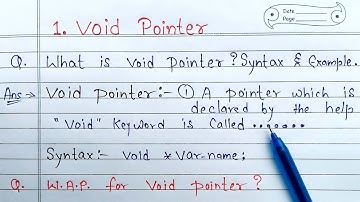 Date
Page
1. Void Pointer
Q. What is void pointer? Syntax & Example.
Ans → Void pointer:- ① A pointer which is
declared by the help
"Void" Keyword is Called ........
Syntax:- Void *Var-name;
Q. W.A.P. for Void pointer?